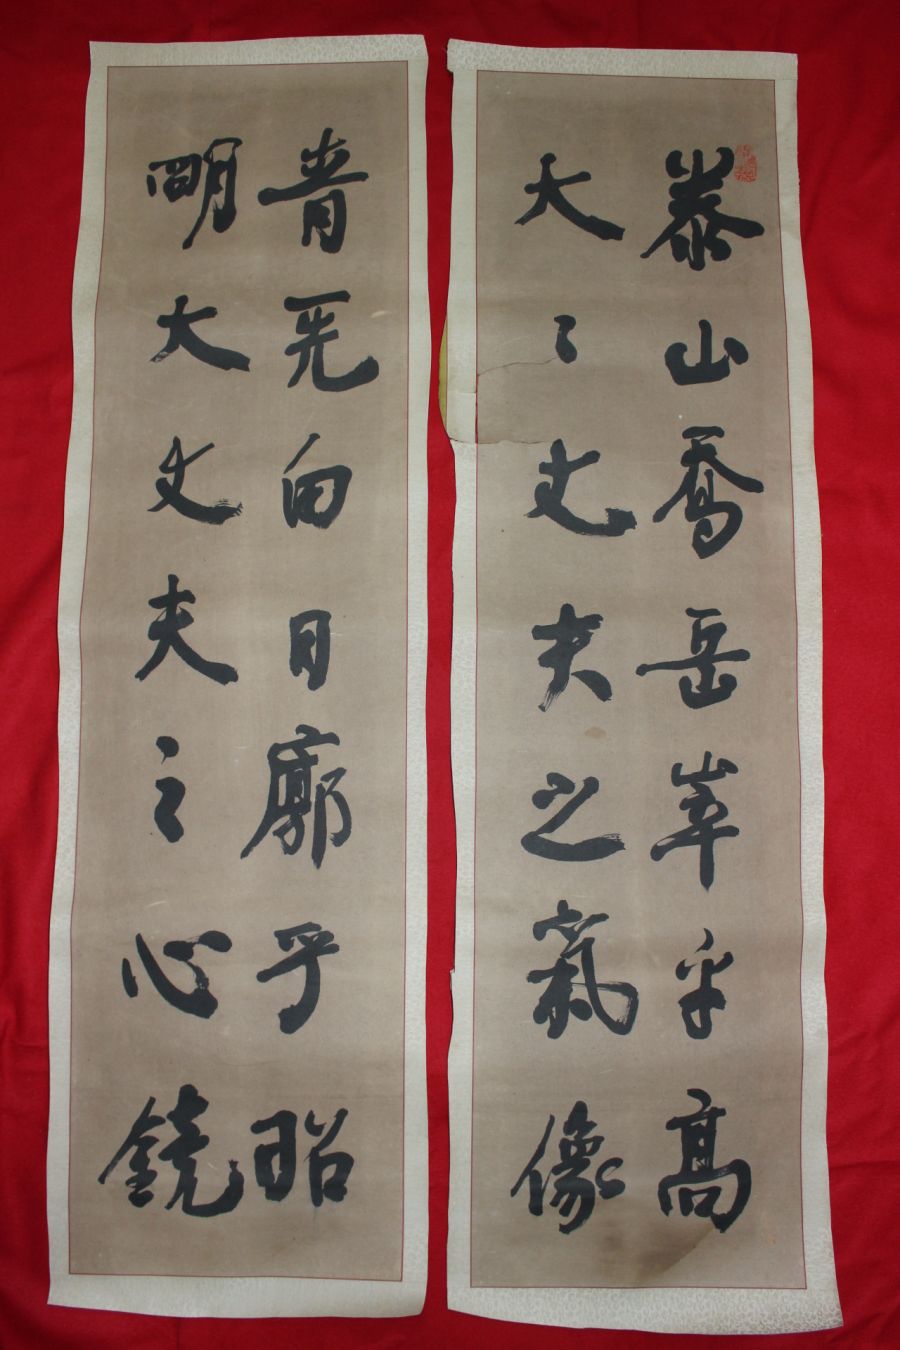 泰山喬岳崒乎高
大〻丈夫之氣像
青天白日廓乎昭
明大丈夫之心鏡